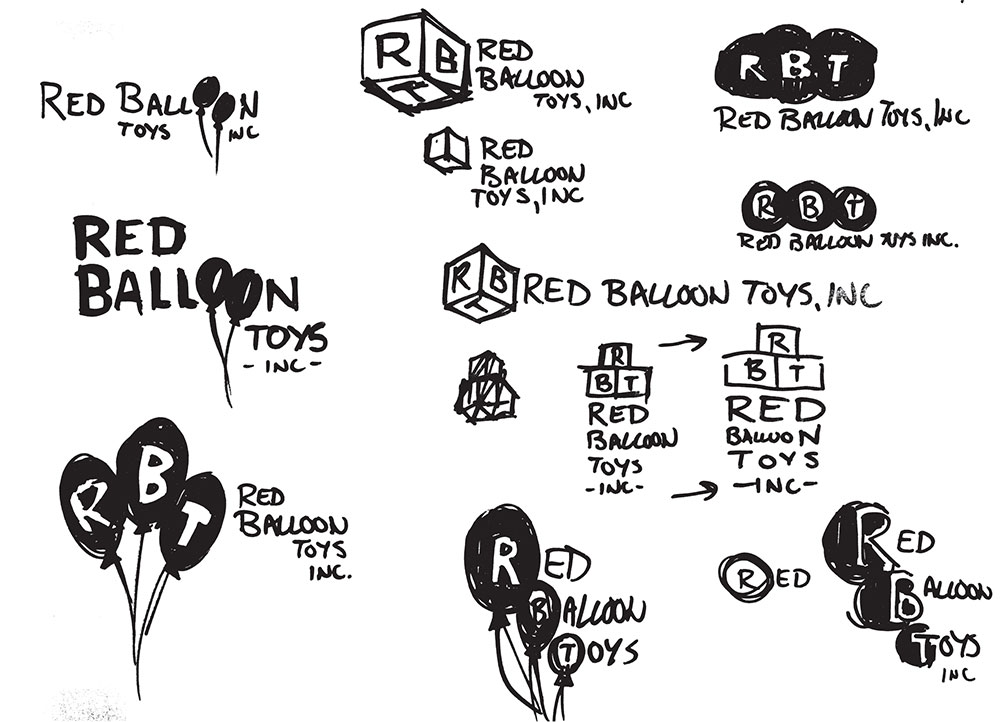 RED BALLOON
TOYS INC
RED
BALLOON
TOYS
- INC -
R B T
RED
BALLOON
TOYS
INC.
R B
T
RED
BALLOON
TOYS, INC
RED
BALLOON
TOYS, INC
R B
T
RED BALLOON TOYS, INC
R
B T
RED
BALLOON
TOYS
- INC -
R
B T
RED
BALLOON
TOYS
- INC -
RED
BALLOON
TOYS
R B T
RED BALLOON TOYS, INC
R B T
RED BALLOON TOYS INC.
RED
RED
BALLOON
TOYS
INC